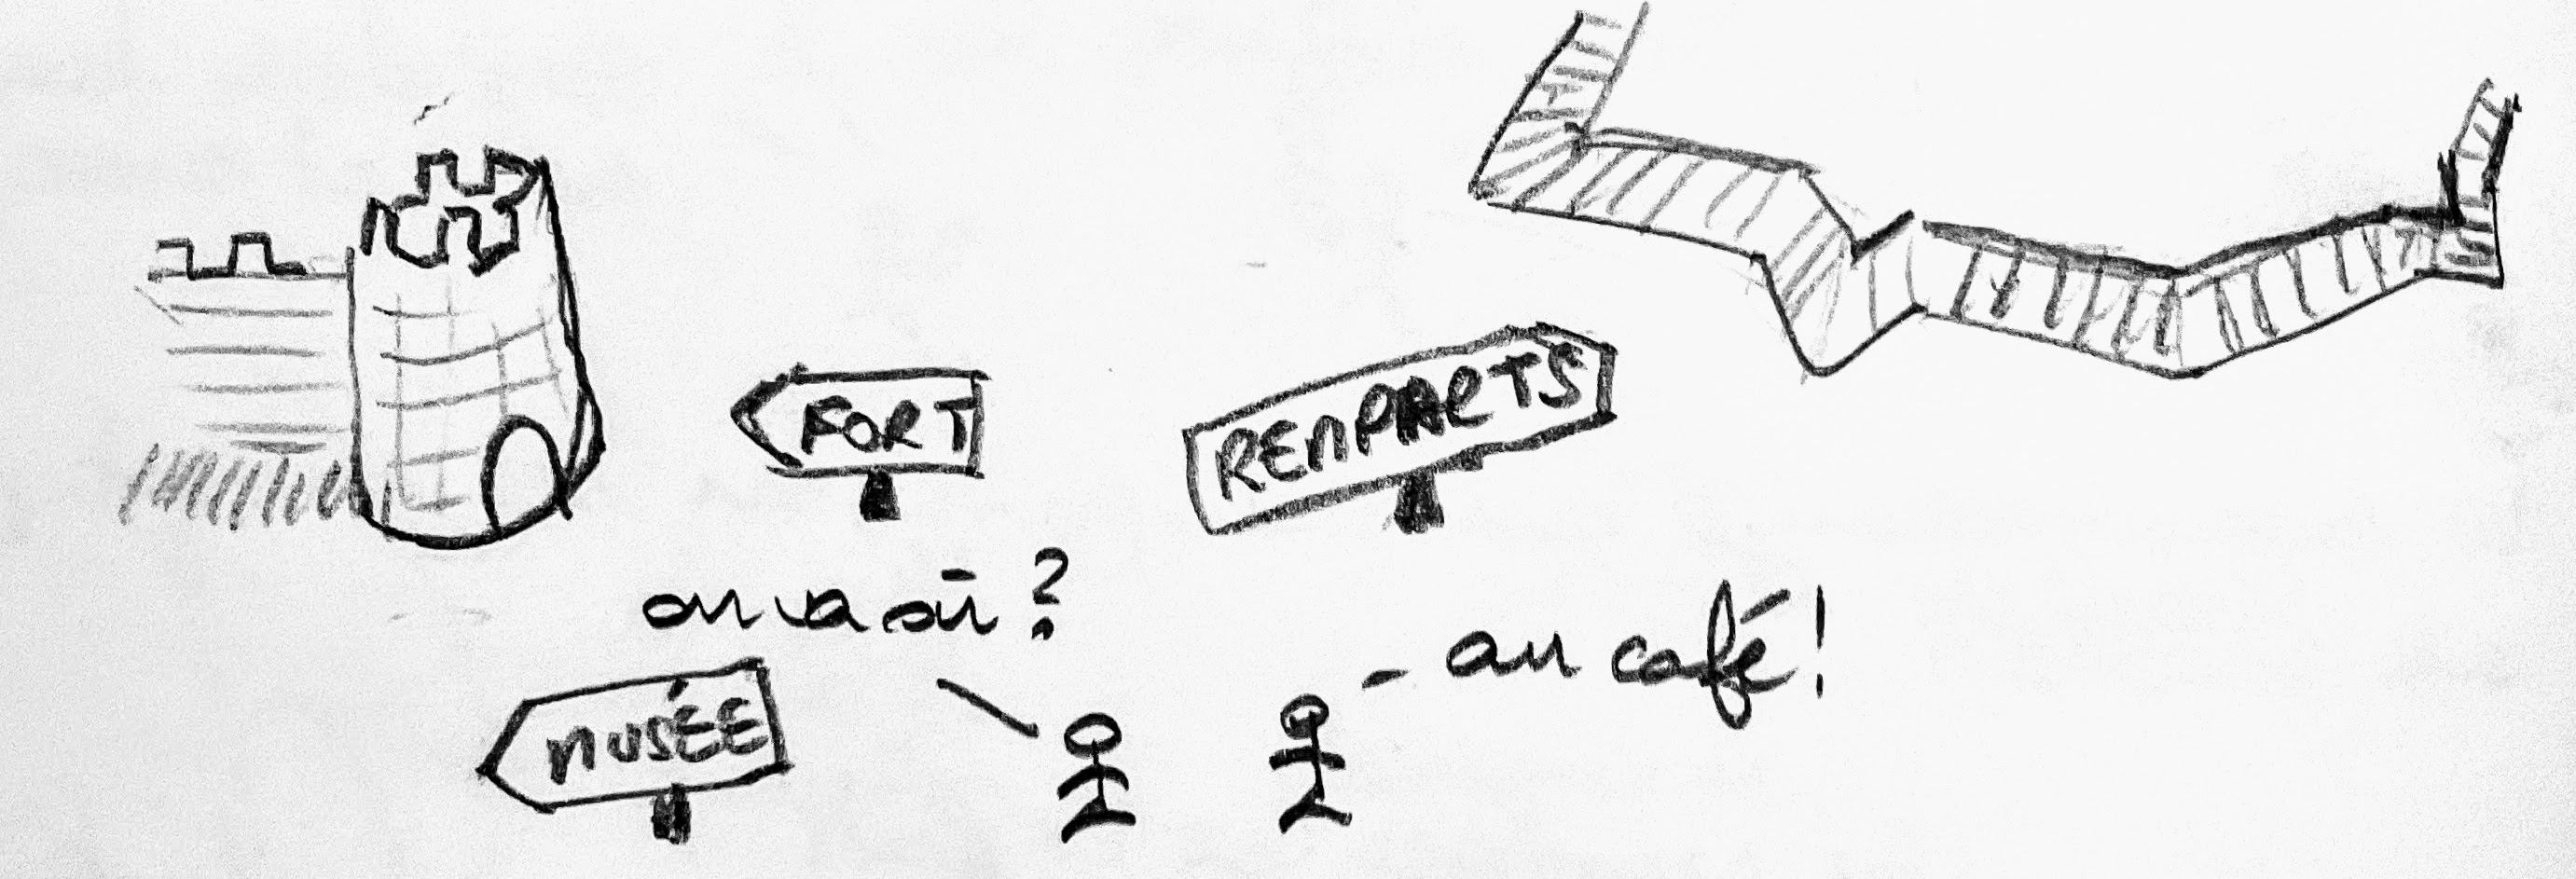 FORT
REMPARTS
on va où ?
- au café !
MUSÉE